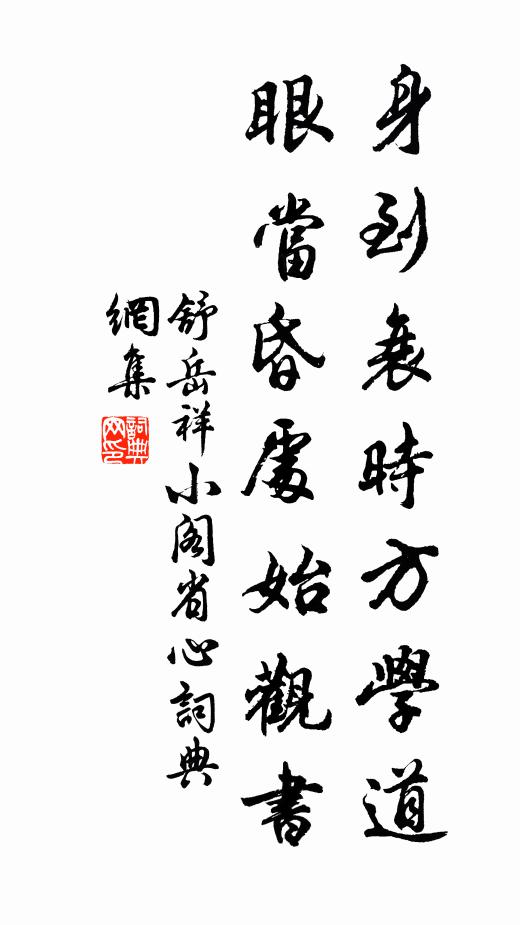 身到衰時方學道
眼當昏處始觀書
舒岳祥小閣省心詞典
網集
詞典
网印